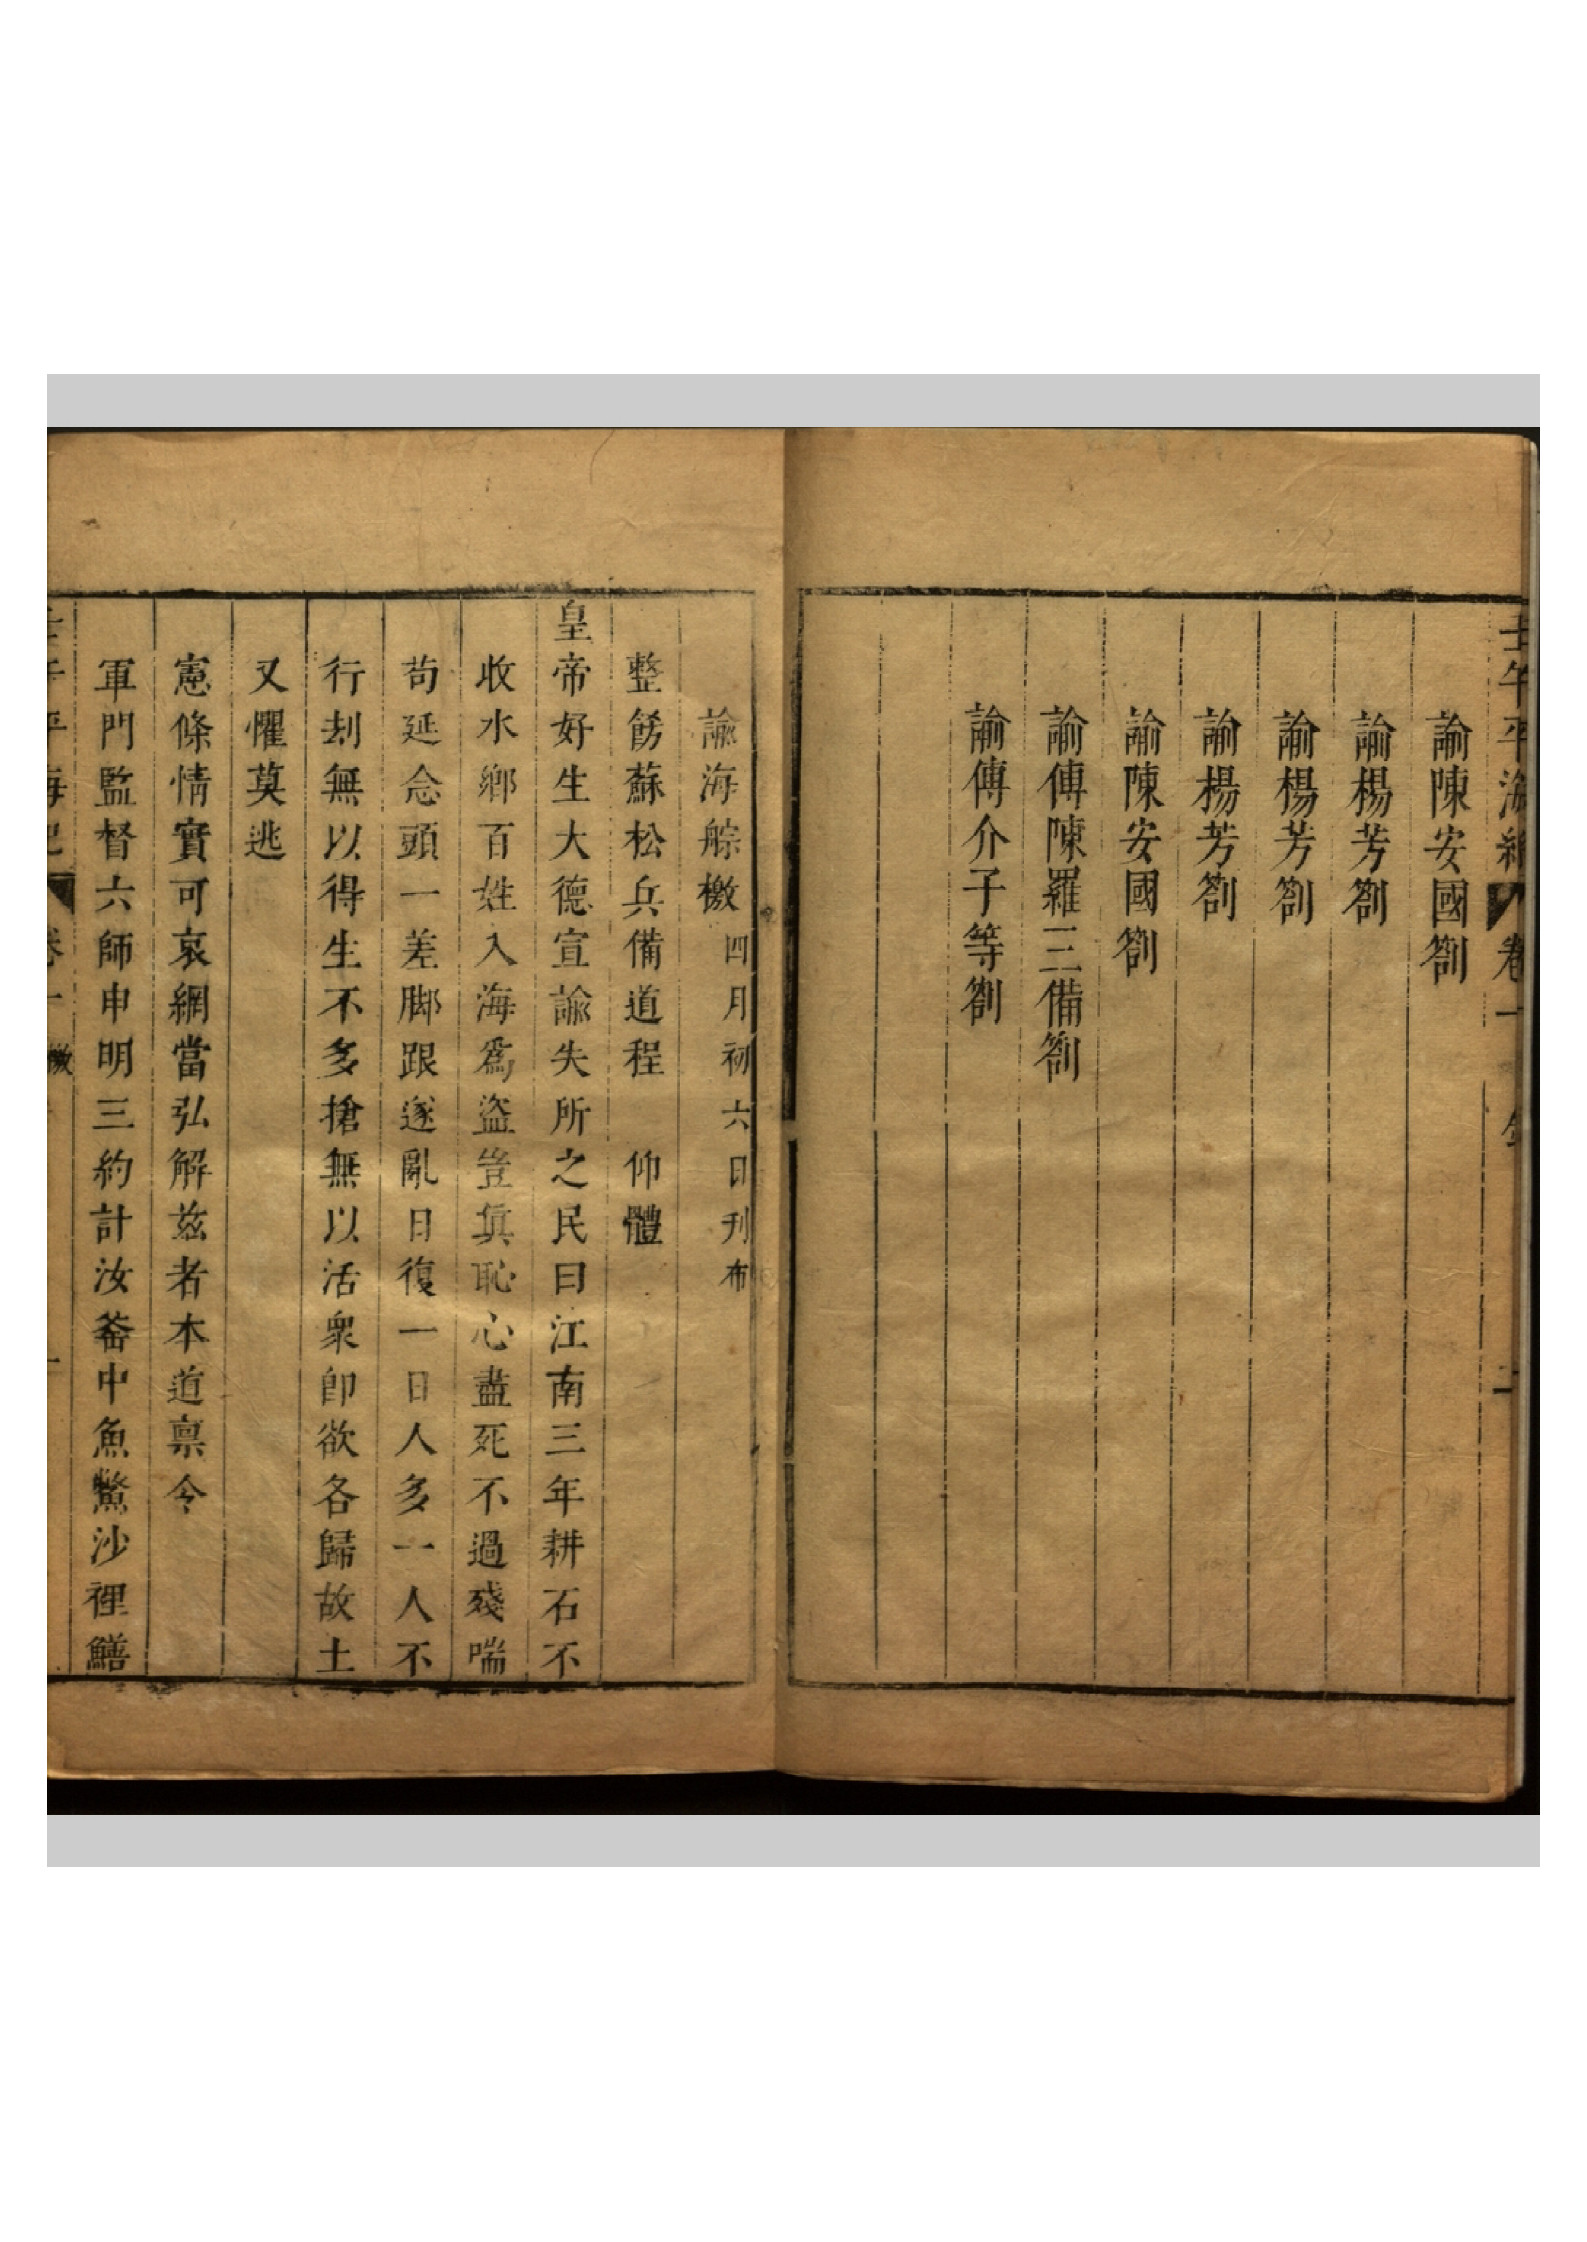 壬午平海紀 卷一 錄 二
諭陳安國劄
諭楊芳劄
諭楊芳劄
諭楊芳劄
諭陳安國劄
諭傅陳羅三備劄
諭傅介子等劄
諭海䑸檄 四月初六日刊布
整飭蘇松兵備道程 仰體
皇帝好生大德宣諭失所之民曰江南三年耕石不
收水鄉百姓入海爲盜豈真恥心盡死不過殘喘
苟延念頭一差脚跟遂亂日復一日人多一人不
行刦無以得生不多搶無以活衆卽欲各歸故土
又懼莫逃
憲條情實可哀網當弘解茲者本道禀令
軍門監督六師申明三約計汝畨中魚鱉沙裡鱔